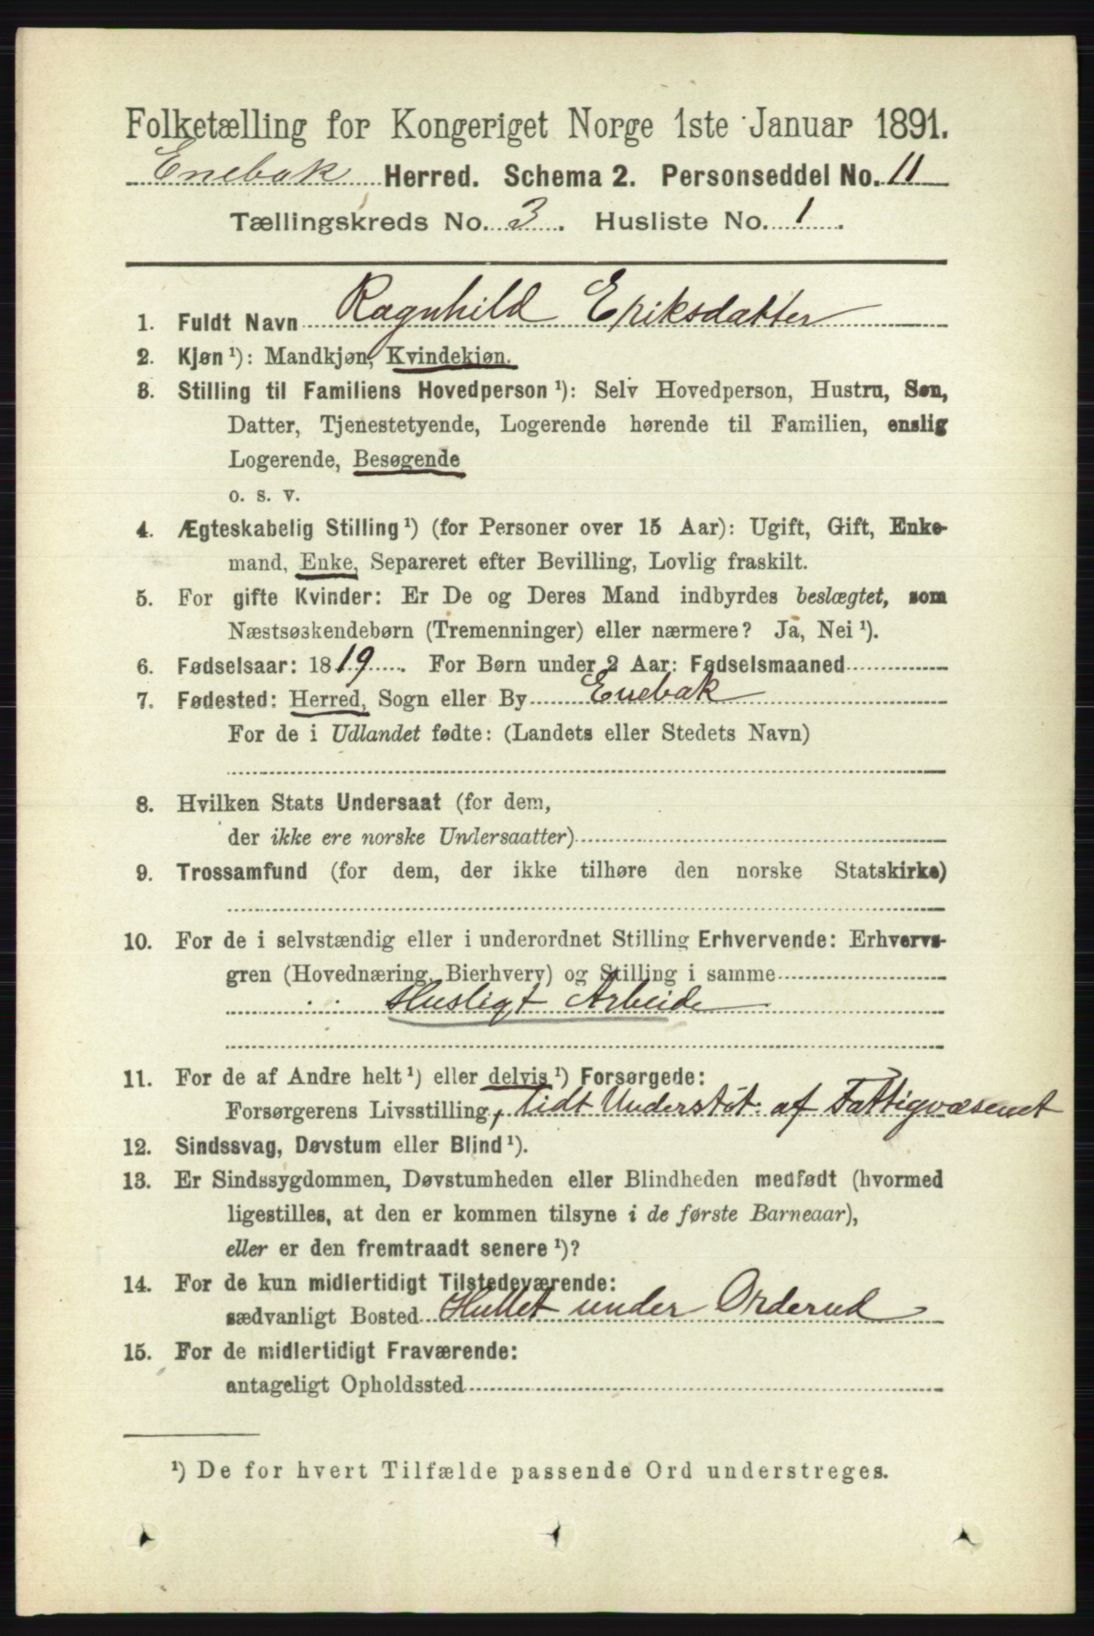 Folketælling for Kongeriget Norge 1ste Januar 1891.
Enebak Herred. Schema 2. Personseddel No. 11
Tællingskreds No. 3. Husliste No. 1.
1. Fuldt Navn Ragnhild Eriksdatter
2. Kjøn ¹): Mandkjøn, Kvindekjøn.
3. Stilling til Familiens Hovedperson ¹): Selv Hovedperson, Hustru, Søn,
Datter, Tjenestetyende, Logerende hørende til Familien, enslig
Logerende, Besøgende
o. s. v.
4. Ægteskabelig Stilling ¹) (for Personer over 15 Aar): Ugift, Gift, Enke-
mand, Enke, Separeret efter Bevilling, Lovlig fraskilt.
5. For gifte Kvinder: Er De og Deres Mand indbyrdes beslægtet, som
Næstsøskendebørn (Tremenninger) eller nærmere? Ja, Nei ¹).
6. Fødselsaar: 1819. For Børn under 2 Aar: Fødselsmaaned
7. Fødested: Herred, Sogn eller By Enebak
For de i Udlandet fødte: (Landets eller Stedets Navn)
8. Hvilken Stats Undersaat (for dem,
der ikke ere norske Undersaatter)
9. Trossamfund (for dem, der ikke tilhøre den norske Statskirke)
10. For de i selvstændig eller i underordnet Stilling Erhvervende: Erhvervs-
gren (Hovednæring, Bierhverv) og Stilling i samme
Husligt Arbeide
11. For de af Andre helt ¹) eller delvis ¹) Forsørgede:
Forsørgerens Livsstilling, lidt Understøt. af Fattigvæsenet
12. Sindssvag, Døvstum eller Blind ¹).
13. Er Sindssygdommen, Døvstumheden eller Blindheden medfødt (hvormed
ligestilles, at den er kommen tilsyne i de første Barneaar),
eller er den fremtraadt senere ¹)?
14. For de kun midlertidigt Tilstedeværende:
sædvanligt Bosted Hullet under Orderud
15. For de midlertidigt Fraværende:
antageligt Opholdssted
¹) De for hvert Tilfælde passende Ord understreges.